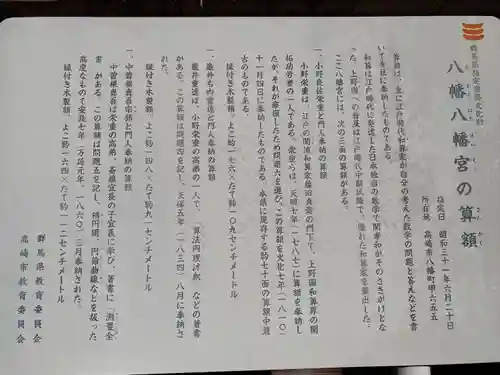 群馬県指定重要文化財
八幡八幡宮の算額
指定日 昭和三十一年六月二十日
所在地 高崎市八幡町甲六五五
算額は、主に江戸時代和算家が自分の考えた数学の問題と答えなどを書
いて寺社に奉納したものである。
和算は江戸時代に発達した日本独自の数学で関孝和がそのさきがけとな
った。上野国への普及は江戸時代中期以降で、優れた和算家を輩出した。
ここ八幡宮には、次の三面の算額がある。
一、小野良佐栄重と門人奉納の算額
小野栄重は、江戸の関流和算家藤田貞資の門下で、上野国和算界の開
拓功労者の一人である。栄重らは、天明七年(一七八七)に算額を奉納し
たが、それが摩損したため問題六を選び、この算額を文化七年(一八一〇)
十一月四日に奉納したものである。本県に現存する約七十面の算額中最
古のものである。
縁付き木製額。よこ約一七六×たて約一〇九センチメートル
一、岩井右内重遠と門人奉納の算額
岩井重遠は、小野栄重の高弟の一人で、「算法円理冰釈」などの著書
がある。この算額は問題四を記し、天保五年(一八三四)八月に奉納さ
れた。
縁付き木製額。よこ約一四八×たて約九一センチメートル
一、中曽根慎吾宗邡と門人奉納の算額
中曽根慎吾は栄重の高弟、斎藤宜長の子宜義に学び、著書に「測量全
書」がある。この算額は問題五を記し、楕円擺、円陥動線などを扱った
高度なもので安政七年(万延元年、一八六〇)三月奉納された。
縁付き木製額。よこ約一六四×たて約一一二センチメートル
群馬県教育委員会
高崎市教育委員会